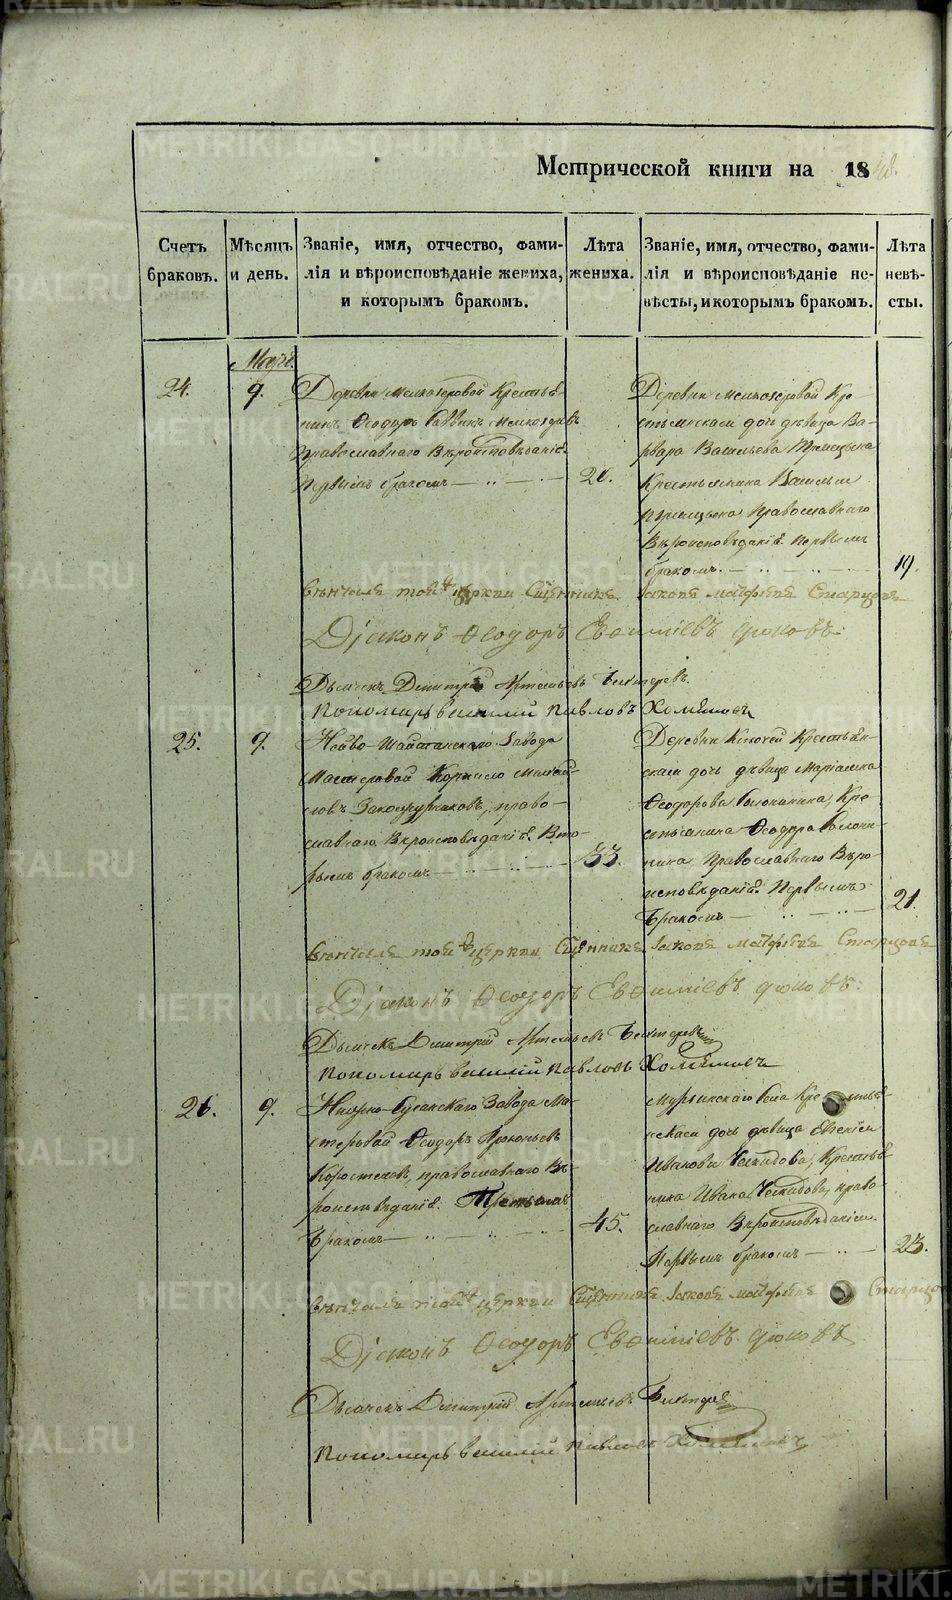 Метрической книги на 1848.
Счетъ браковъ.
Мѣсяцъ и день.
Званіе, имя, отчество, фами-
лія и вѣроисповѣданіе жениха,
и которымъ бракомъ.
Лѣта жениха.
Званіе, имя, отчество, фами-
лія и вѣроисповѣданіе не-
вѣсты, и которымъ бракомъ.
Лѣта невѣ-
сты.
24.
9.
Деревни Мелкозеровой Крестья-
нинъ Ѳеодоръ Мелкозеровъ
Православнаго Вѣроисповѣданія
Первымъ бракомъ
20.
Деревни Мелкозеровой Кре-
стьянская дочь дѣвица Ва-
рвара Васильева
Крестьянина Василья
Православнаго
Вѣроисповѣданія Первымъ
бракомъ.
19.
Вѣнчалъ той церкви Священникъ Іаковъ Матфѣевъ Старцовъ
Діаконъ Ѳеодоръ Евѳиміевъ Дюковъ
Дьячекъ Димитрій Артемьевъ Бехтеревъ.
Пономарь Василій Павловъ Хомяковъ
25.
9.
Нейво-Шайтанскаго Завода
Мастеровой Корнило
право-
славнаго Вѣроисповѣданія Вто-
рымъ бракомъ
33.
Деревни Крестьян-
ская дочь дѣвица Маріамна
Ѳеодорова Кре-
стьянина Ѳеодора
Православнаго Вѣро-
исповѣданія Первымъ
Бракомъ
21.
Вѣнчалъ той церкви Священникъ Іаковъ Матфѣевъ Старцовъ
Діаконъ Ѳеодоръ Евѳиміевъ Дюковъ
Дьячекъ Димитрій Артемьевъ Бехтеревъ
Пономарь Василій Павловъ Хомяковъ
26.
9.
Завода Ма-
стеровой Ѳеодоръ Прокопьевъ
Коростелевъ, православнаго Вѣ-
роисповѣданія. Третьимъ
Бракомъ
45.
Мурзинскаго Села Крестьян-
ская дочь дѣвица Евгенія
Иванова Ческидова, Крестья-
нина Ивана Ческидова, право-
славнаго Вѣроисповѣданія.
Первымъ бракомъ
23.
Вѣнчалъ той церкви Священникъ Іаковъ Матфѣевъ Старцовъ
Діаконъ Ѳеодоръ Евѳиміевъ Дюковъ
Дьячекъ Димитрій Артемьевъ Бехтеревъ
Пономарь Василій Павловъ Хомяковъ
METRIKI.GASO-URAL.RU